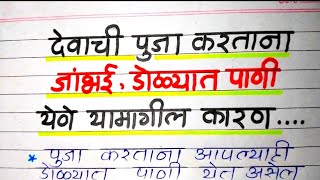 देवाची पुजा करताना
जांभई, डोळ्यात पाणी
येणे यामागील कारण....
* पुजा करताना आपल्याही
डोळ्यात पाणी येत असेल